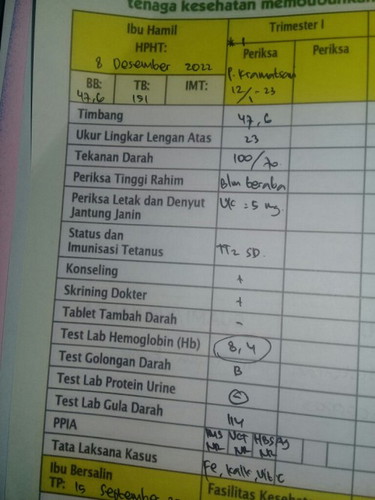 tenaga kesehatan membubuhkan
Ibu Hamil
Trimester I
HPHT:
8 Desember 2022
Periksa
Periksa
12/1-23
BB:
47,6
TB:
151
IMT:
Timbang 47,6
Ukur Lingkar Lengan Atas 23
Tekanan Darah 100/70
Periksa Tinggi Rahim Blm teraba
Periksa Letak dan Denyut
Jantung Janin
Status dan
Imunisasi Tetanus TT2 SD.
Konseling +
Skrining Dokter +
Tablet Tambah Darah -
Test Lab Hemoglobin (Hb) 8,4
Test Golongan Darah B
Test Lab Protein Urine -
Test Lab Gula Darah 114
PPIA
Tata Laksana Kasus Fe, kalk, Vit C
Ibu Bersalin
TP: 15 September
Fasilitas Kesehatan